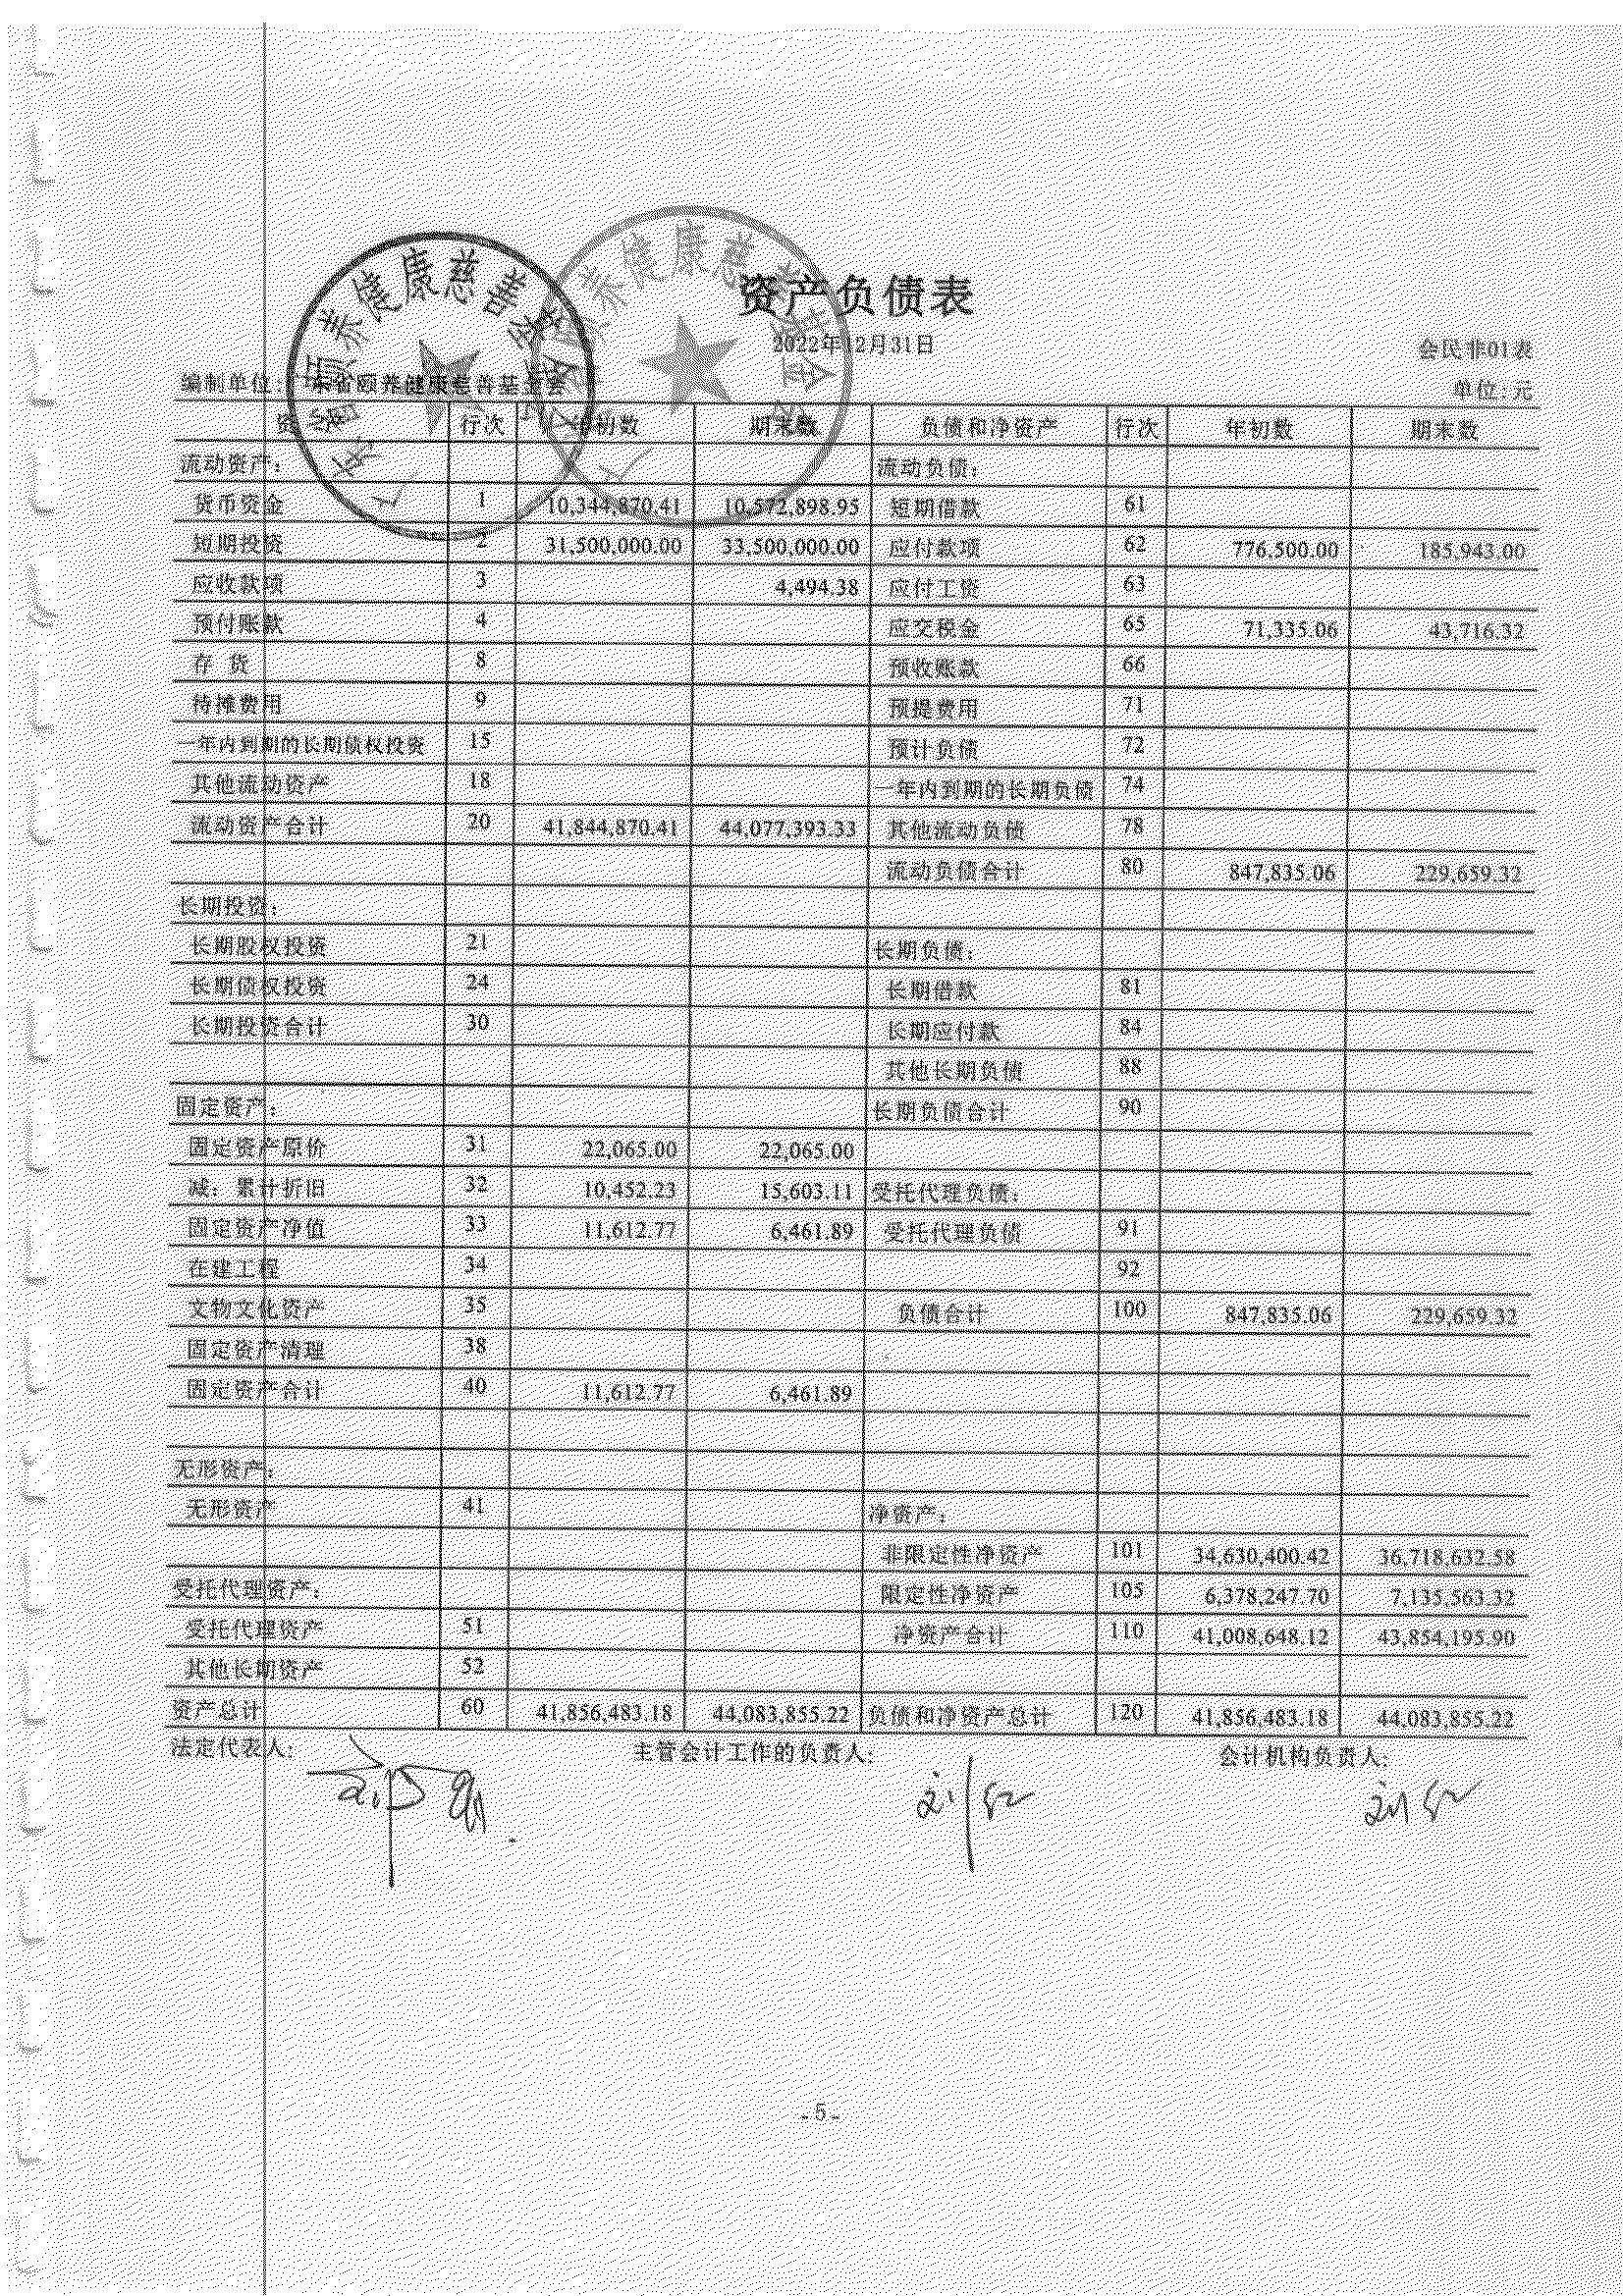 资产负债表
2022年12月31日
会民非01表
编制单位:广东省颐养健康慈善基金会 单位:元
资 产 行次 年初数 期末数 负债和净资产 行次 年初数 期末数
流动资产: 流动负债:
货币资金 1 10,344,870.41 10,572,898.95 短期借款 61
短期投资 2 31,500,000.00 33,500,000.00 应付款项 62 776,500.00 185,943.00
应收款项 3 4,494.38 应付工资 63
预付账款 4 应交税金 65 71,335.06 43,716.32
存 货 8 预收账款 66
待摊费用 9 预提费用 71
一年内到期的长期债权投资 15 预计负债 72
其他流动资产 18 一年内到期的长期负债 74
流动资产合计 20 41,844,870.41 44,077,393.33 其他流动负债 78
流动负债合计 80 847,835.06 229,659.32
长期投资:
长期股权投资 21 长期负债:
长期债权投资 24 长期借款 81
长期投资合计 30 长期应付款 84
其他长期负债 88
固定资产: 长期负债合计 90
固定资产原价 31 22,065.00 22,065.00
减:累计折旧 32 10,452.23 15,603.11 受托代理负债:
固定资产净值 33 11,612.77 6,461.89 受托代理负债 91
在建工程 34 92
文物文化资产 35 负债合计 100 847,835.06 229,659.32
固定资产清理 38
固定资产合计 40 11,612.77 6,461.89
无形资产:
无形资产 41 净资产:
非限定性净资产 101 34,630,400.42 36,718,632.58
受托代理资产: 限定性净资产 105 6,378,247.70 7,135,563.32
受托代理资产 51 净资产合计 110 41,008,648.12 43,854,195.90
其他长期资产 52
资产总计 60 41,856,483.18 44,083,855.22 负债和净资产总计 120 41,856,483.18 44,083,855.22
法定代表人: 主管会计工作的负责人: 会计机构负责人:
-5-